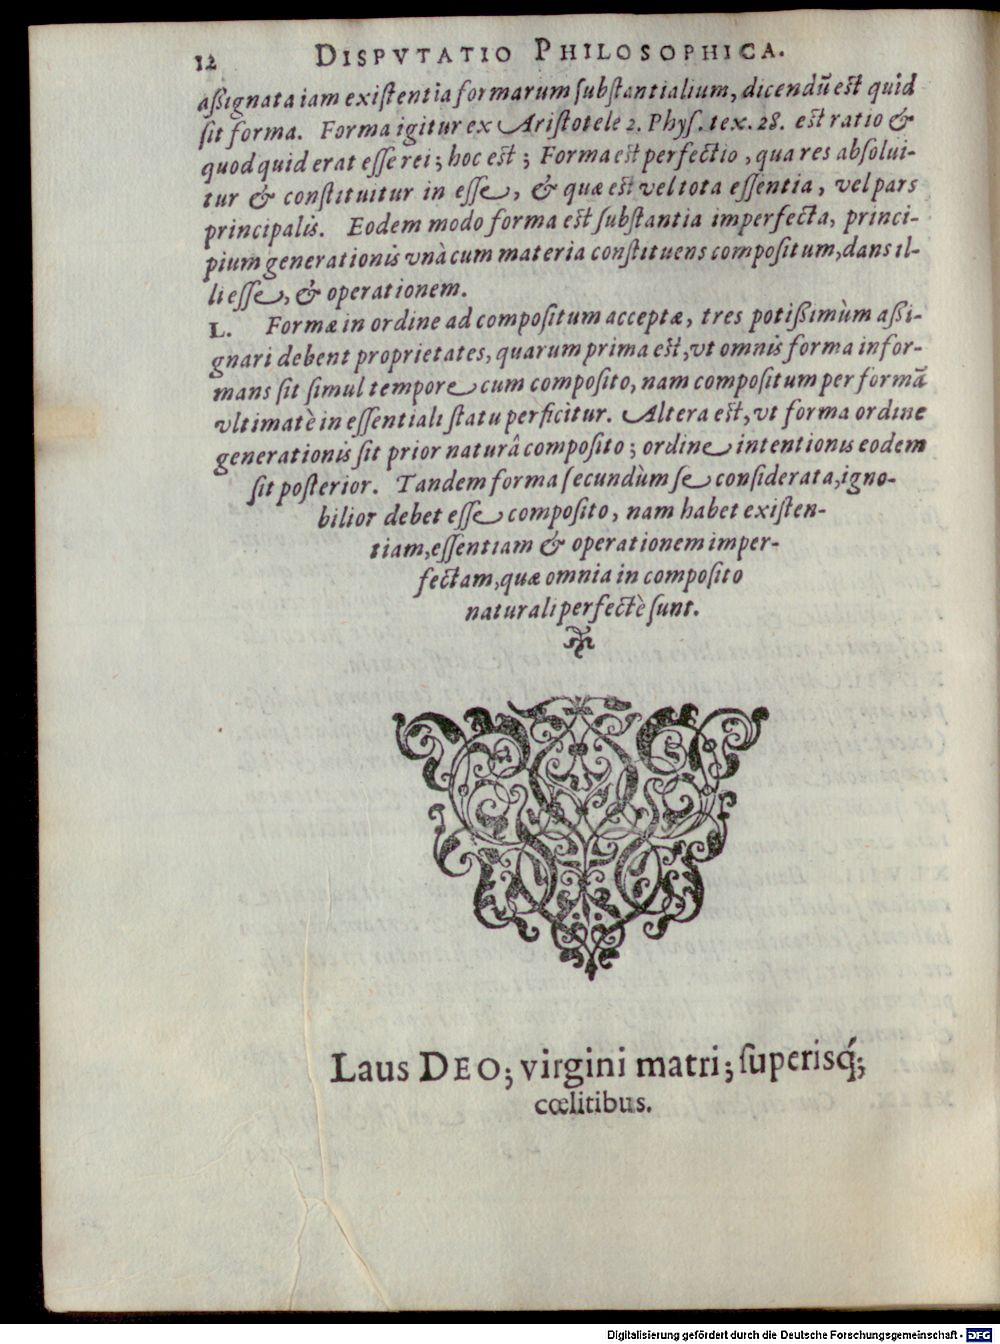 12 DISPVTATIO PHILOSOPHICA.
aſſignata iam exiſtentia formarum ſubſtantialium, dicendū eſt quid
ſit forma. Forma igitur ex Ariſtotele 2. Phyſ. tex. 28. eſt ratio &
quod quid erat eſſe rei; hoc eſt; Forma eſt perfectio, qua res abſolui-
tur & conſtituitur in eſſe, & quæ eſt vel tota eſſentia, vel pars
principalis. Eodem modo forma eſt ſubſtantia imperfecta, princi-
pium generationis vnà cum materia conſtituens compoſitum, dans il-
li eſſe, & operationem.
L. Formæ in ordine ad compoſitum acceptæ, tres potiſſimùm aſſi-
gnari debent proprietates, quarum prima eſt, vt omnis forma infor-
mans ſit ſimul tempore cum compoſito, nam compoſitum per formā
vltimatè in eſſentiali ſtatu perficitur. Altera eſt, vt forma ordine
generationis ſit prior naturâ compoſito; ordine intentionis eodem
ſit poſterior. Tandem forma ſecundùm ſe conſiderata, igno-
bilior debet eſſe compoſito, nam habet exiſten-
tiam, eſſentiam & operationem imper-
fectam, quæ omnia in compoſito
naturali perfectè ſunt.
Laus DEO; virgini matri; ſuperisq́;
cœlitibus.
Digitalisierung gefördert durch die Deutsche Forschungsgemeinschaft - DFG